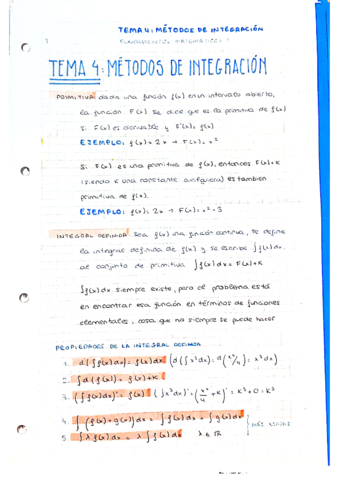 TEMA 4: MÉTODOS DE INTEGRACIÓN
FUNDAMENTOS MATEMÁTICOS
1
TEMA 4: MÉTODOS DE INTEGRACIÓN
PRIMITIVA: dada una función f(x) en un intervalo abierto,
la función F(x) se dice que es la primitiva de f(x)
si F(x) es derivable y F'(x) = f(x)
EJEMPLO: f(x) = 2x → F(x) = x²
Si F(x) es una primitiva de f(x), entonces F(x)+K
(siendo K una constante cualquiera) es también
primitiva de f(x).
EJEMPLO: f(x): 2x → F(x) = x² - 3
INTEGRAL DEFINIDA: Sea f(x) una función continua, se define
la integral definida de f(x) y se escribe ∫f(x)dx,
al conjunto de primitiva ∫f(x)dx = F(x)+K
∫f(x)dx siempre existe, pero el problema está
en encontrar esa función en términos de funciones
elementales, cosa que no siempre se puede hacer
PROPIEDADES DE LA INTEGRAL DEFINIDA
1. d(∫f(x)dx) = f(x)dx (d(∫x³dx): d(x⁴/4): x³dx)
2. ∫d(f(x)) = f(x)+K
3. (∫f(x)dx)' = f(x) (∫x³dx)' = (x⁴/4 + K)' = x³+0 = x³
4. ∫(f(x)+g(x))dx = ∫f(x)dx + ∫g(x)dx
5. ∫λf(x)dx = λ∫f(x)dx λ ∈ R